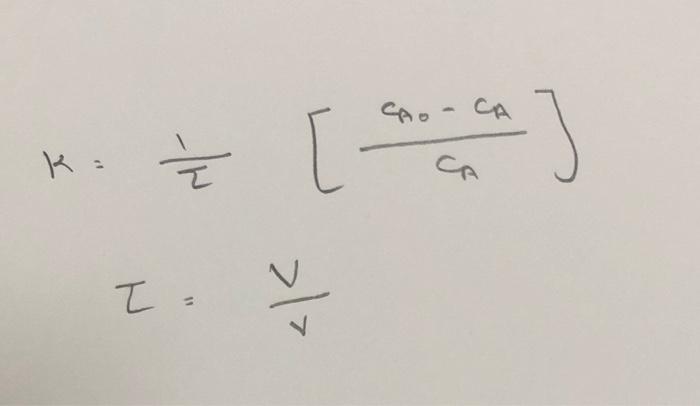 K = 1/τ [ (C_A0 - C_A) / C_A ]
τ = V/v